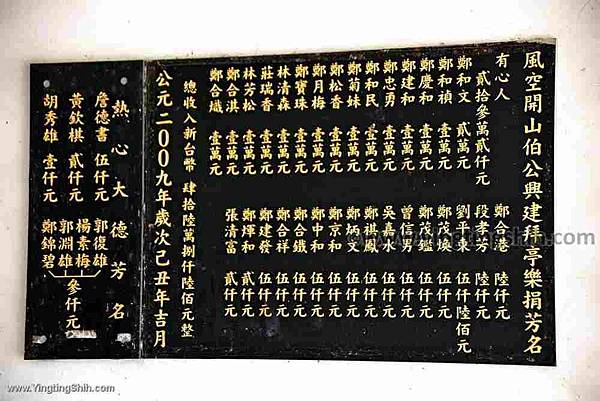 風空開山伯公興建拜亭樂捐芳名
有心人 貳拾參萬貳仟元
鄭和文 貳萬元
鄭和禎 壹萬元
鄭慶和 壹萬元
鄭建和 壹萬元
鄭忠勇 壹萬元
鄭和民 壹萬元
鄭菊妹 壹萬元
鄭松香 壹萬元
鄭月梅 壹萬元
鄭寶珠 壹萬元
林清森 壹萬元
莊瑞香 壹萬元
林芳松 壹萬元
鄭合淇 壹萬元
鄭合熾 壹萬元
鄭合港 陸仟元
段孝芳 陸仟元
劉平東 伍仟陸佰元
鄭茂煥 伍仟元
鄭茂鑑 伍仟元
曾信乃 伍仟元
吳嘉火 伍仟元
鄭祺鳳 伍仟元
鄭炳文 伍仟元
鄭京和 伍仟元
鄭中和 伍仟元
鄭合鐵 伍仟元
鄭合祥 伍仟元
鄭建發 伍仟元
鄭煇和 貳仟元
張清富 貳仟元
總收入新台幣 肆拾陸萬捌仟陸佰元整
公元二00九年歲次己丑年吉月
熱心大德芳名
詹德書 伍仟元
黃欽棋 貳仟元
胡秀雄 壹仟元
郭復雄
楊素梅
郭淵雄
鄭錦碧
參仟元
www.YingtingShih.com